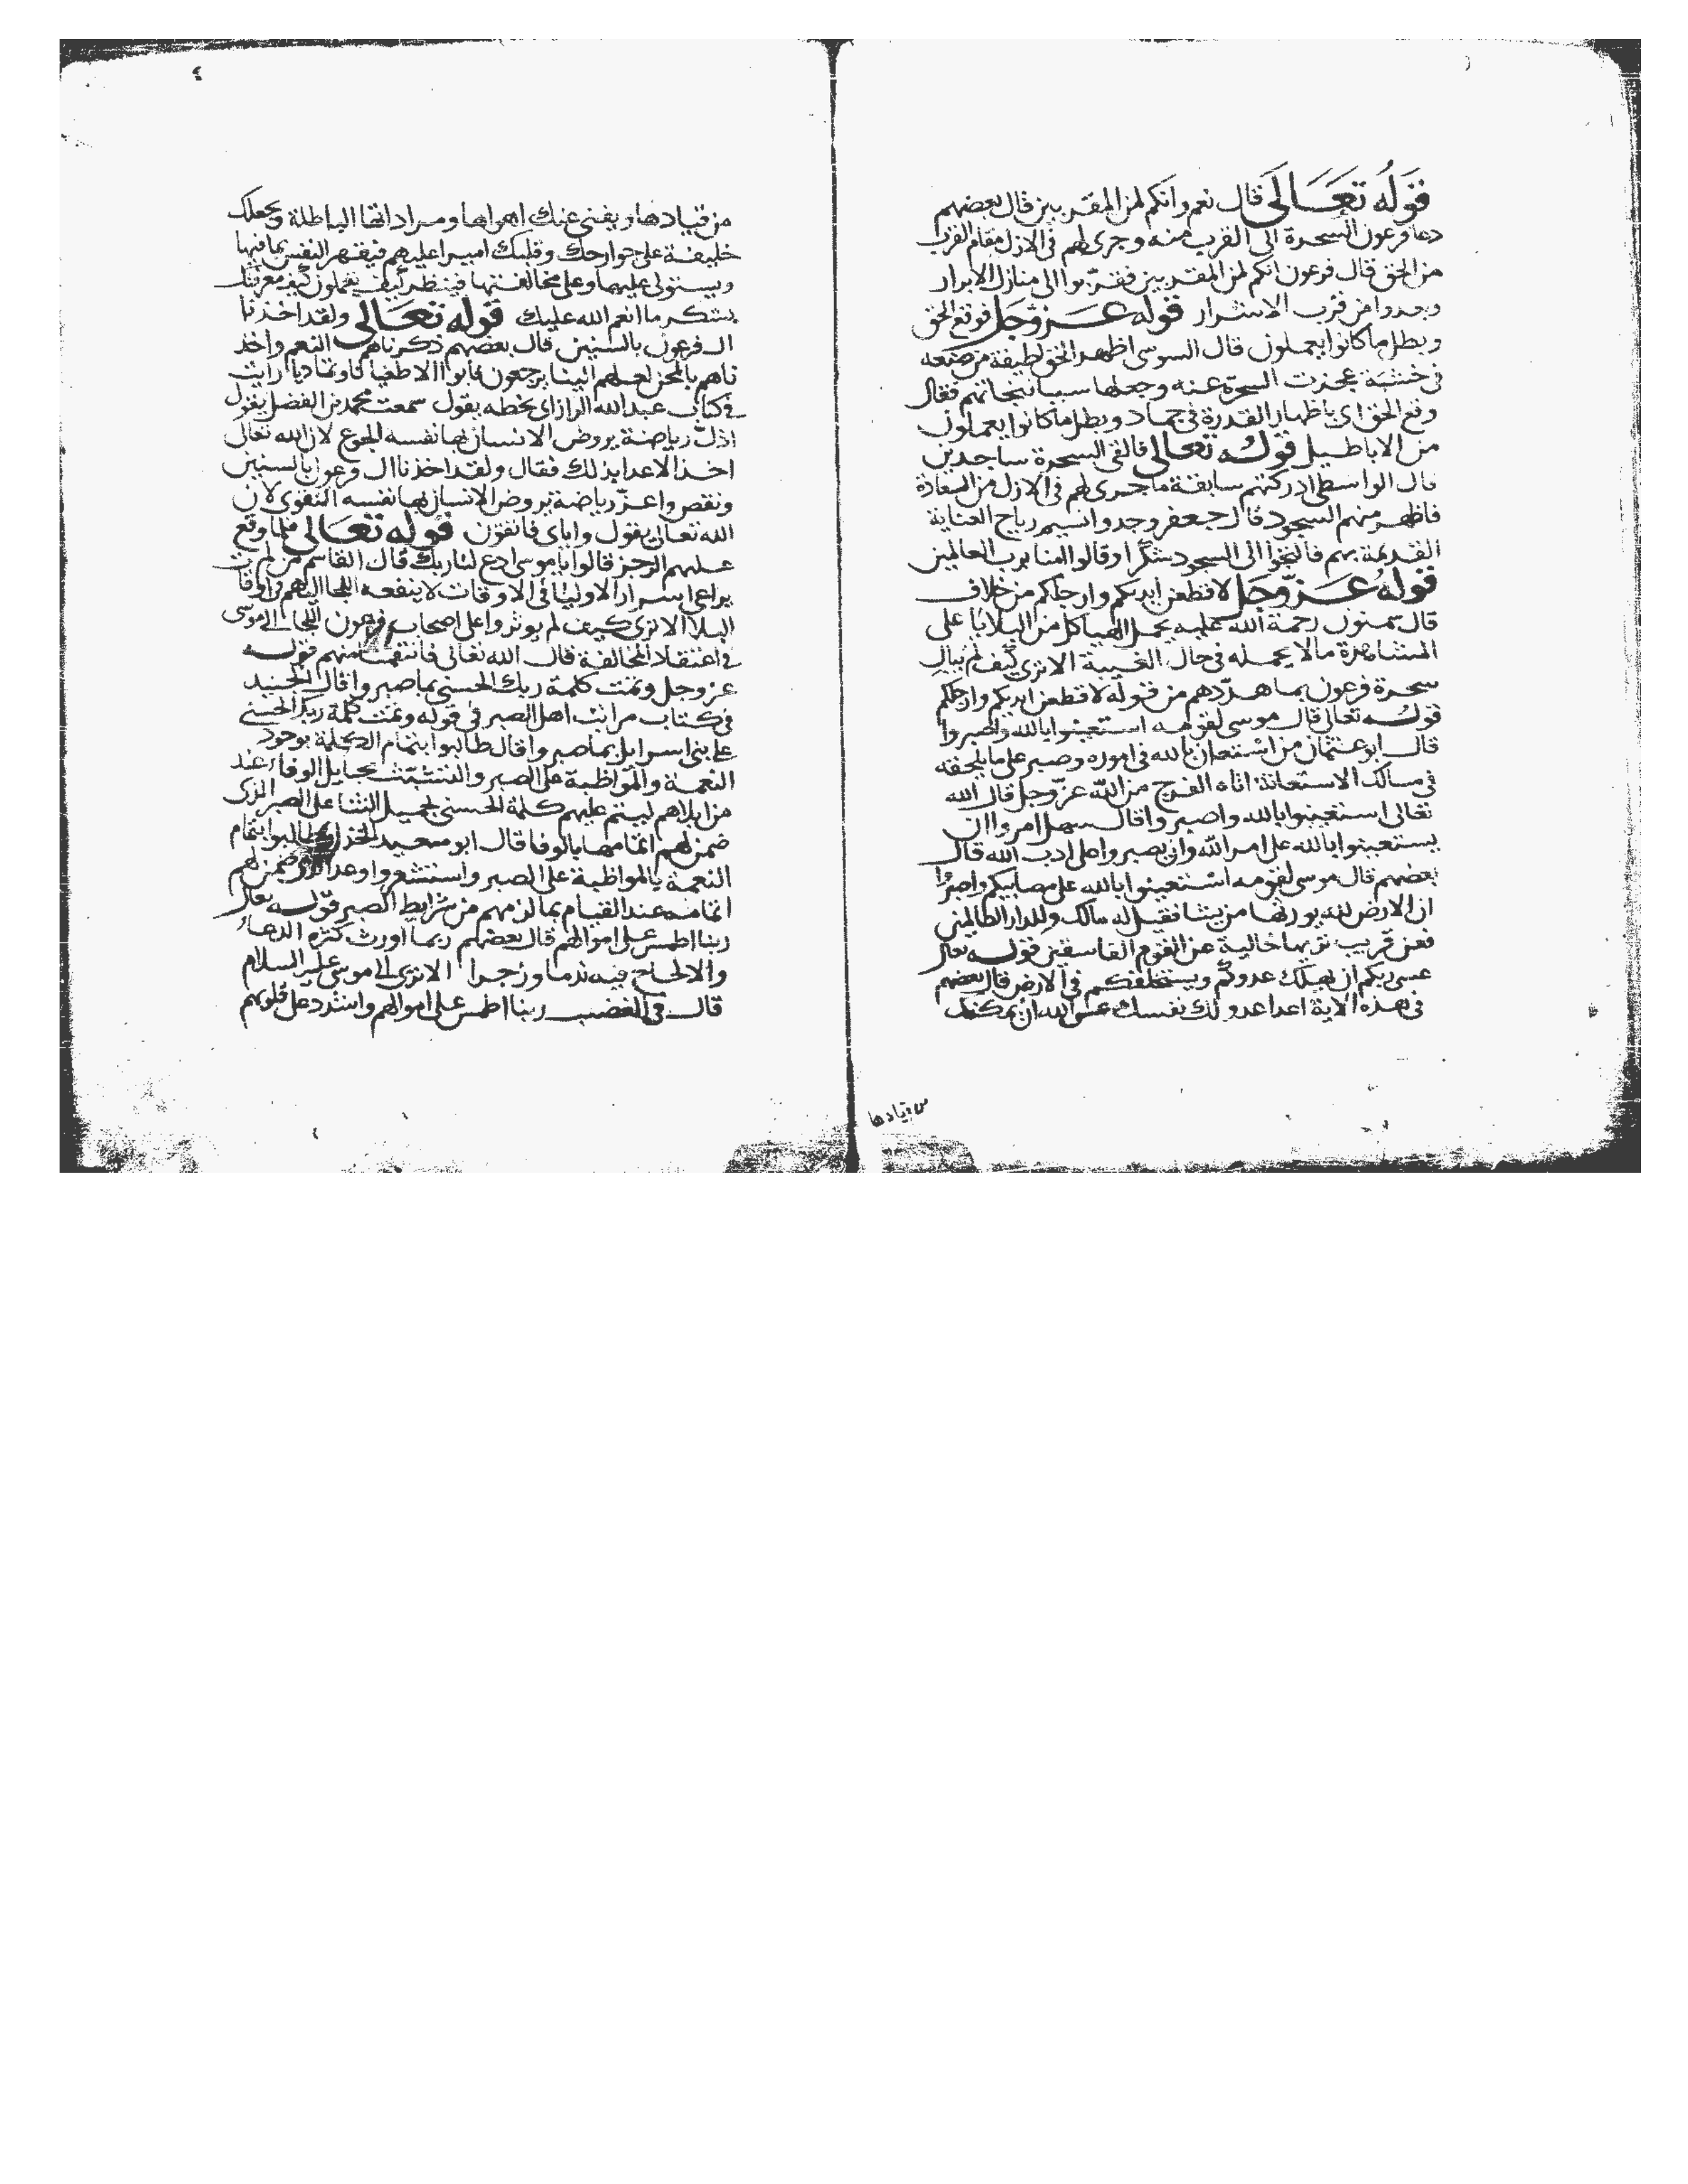 قوله تعالى قال نعم وانكم لمن المقربين قال بعضهم
دعا فرعون السحرة الى القرب منه وجرى لهم فى الازل مقام القرب
من الحق قال فرعون انكم لمن المقربين فقربوا الى منازل الابرار
وبعدوا من قرب الاشرار قوله عز وجل فوقع الحق
وبطل ما كانوا يعملون قال السوسى اظهر الحق لطيفة من صنعه
فى خشبة عجزت السحرة عنه وجعلها سببا لنجاتهم فقال
وقع الحق اى باظهار القدرة فى جماد وبطل ما كانوا يعملون
من الاباطيل قوله تعالى فالقى السحرة ساجدين
قال الواسطى ادركتهم سابقة ما جرى لهم فى الازل من السعادة
فاظهر منهم السجود قال جعفر وجدوا نسيم رياح العناية
القديمة بهم فالتجوا الى السجود شكرا وقالوا امنا برب العالمين
قوله عز وجل لاقطعن ايديكم وارجلكم من خلاف
قال سمنون رحمة الله عليه يحمل الهياكل من البلايا على
المشاهدة ما لا يحمله فى حال الغيبة الا ترى كيف لم يبال
سحرة فرعون بما هددهم من قوله لاقطعن ايديكم وارجلكم
قوله تعالى قال موسى لقومه استعينوا بالله واصبروا
قال ابو عثمان من استعان بالله فى اموره وصبر على ما يلحقه
فى مسالك الاستعانة اتاه الفرج من الله عز وجل قال الله
تعالى استعينوا بالله واصبروا قال سهل امروا ان
يستعينوا بالله على امر الله وان يصبروا على ادب الله قال
بعضهم قال موسى لقومه استعينوا بالله على مصايبكم واصبروا
ان الارض لله يورثها من يشا فقيل له مالك ولدار الظالمين
فعن قريب تريها خالية عن القوم الفاسقين قوله تعالى
عسى ربكم ان يهلك عدوكم ويستخلفكم فى الارض قال بعضهم
فى هذه الاية اعدا عدو لك نفسك عسى الله ان يمكنك
من قيادها
من قيادها ويفنى عنك اهواها ومراداتها الباطلة ويجعلك
خليفة على جوارحك وقلبك اميرا عليهم فيقهر النفس بما فيها
ويستولى عليها وعلى مخالفتها فينظر كيف يعملون كيف معرفتك
بشكر ما انعم الله عليك قوله تعالى ولقد اخذنا
ال فرعون بالسنين قال بعضهم ذكرناهم النعم واخذ
ناهم بالمحن لعلهم الينا يرجعون فابوا الا طغيانا وتماديا رايت
فى كتاب عبد الله الرازى بخطه يقول سمعت محمد بن الفضل يقول
اذل رياضة يروض الانسان بها نفسه الجوع لان الله تعالى
اخذ الاعدا بذلك فقال ولقد اخذنا ال فرعون بالسنين
ونقص واعز رياضة يروض الانسان بها نفسه التقوى لان
الله تعالى يقول واياى فاتقون قوله تعالى فلما وقع
عليهم الرجز قالوا يا موسى ادع لنا ربك قال القاسم من لم
يراعى اسرار الاوليا فى الاوقات لا ينفعه اللجا اليهم فى اوقات
البلا الا ترى كيف لم يوثر على اصحاب فرعون اللجا الى موسى
فى اعتقاد المخالفة قال الله تعالى فانتقمنا منهم قوله
عز وجل وتمت كلمة ربك الحسنى بما صبروا قال الجنيد
فى كتاب مراتب اهل الصبر فى قوله وتمت كلمة ربك الحسنى
على بنى اسرايل بما صبروا قال طالبوا بتمام الكلمة بوجود
النعمة والمواظبة على الصبر والتشبث بحبايل الوفاء عند
من ابلاهم ليتم عليهم كلمة الحسنى بجميل الثنا على الصبر الذى
ضمن لهم اتمامها بالوفا قال ابو سعيد الخراز طالبوا بتمام
النعمة بالمواظبة على الصبر واستشعروا وعد الذى ضمن لهم
اتمامه عند القيام بما لزمهم من شرايط الصبر قوله تعالى
ربنا اطمس على اموالهم قال بعضهم ربما اورث كثرة الدعاء
والالحاح فيه ندما وزجرا الا ترى الى موسى عليه السلام
قال فى الغضب ربنا اطمس على اموالهم واشدد على قلوبهم